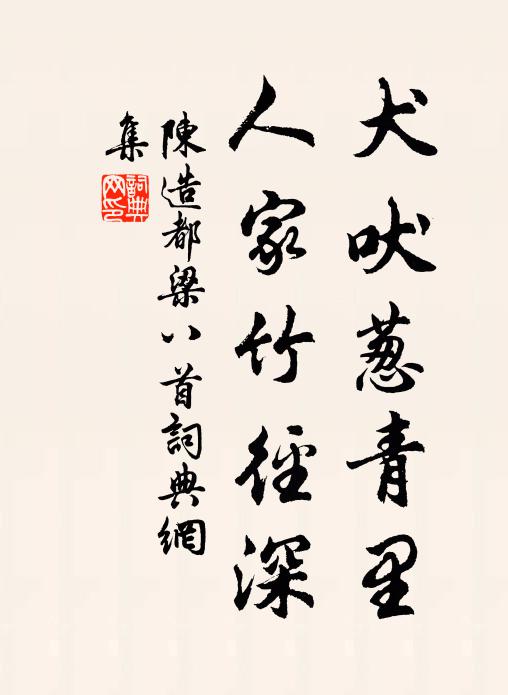 犬吠葱青里
人家竹徑深
陳造都梁八首詞典網
集
詞典網印